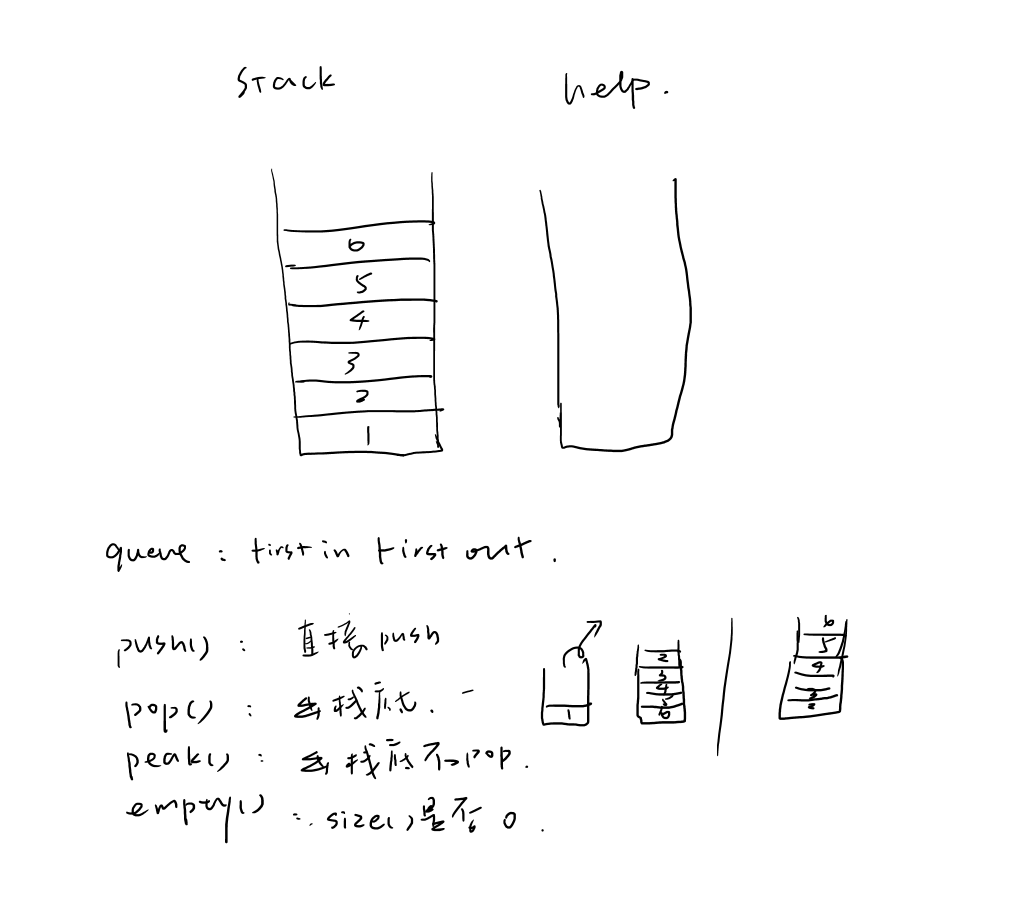 Stack help.
6
5
4
3
2
1
queue : first in first out .
push() : 直接 push
pop() : 去栈底 .
peak() : 去栈底不pop .
empty() : size()是否 0 .
1
2
3
4
5
6
6
5
4
3
2